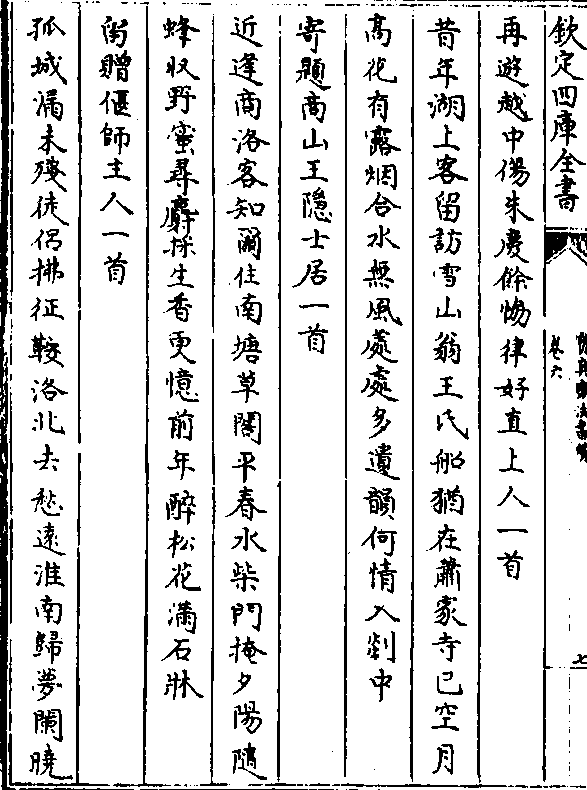 欽定四庫全書
卷六
七
再遊越中傷朱慶餘協律好直上人一首
昔年湖上客留訪雪山翁王氏船猶在蕭家寺已空月
高花有露烟合水無風處處多遺韻何情入剡中
寄題商山王隱士居一首
近逢商洛客知爾住南塘草閣平春水柴門掩夕陽隨
蜂収野蜜尋麝採生香更憶前年醉松花滿石牀
留贈偃師主人一首
孤城漏未殘徒侶拂征鞍洛北去愁遠淮南歸夢闌曉